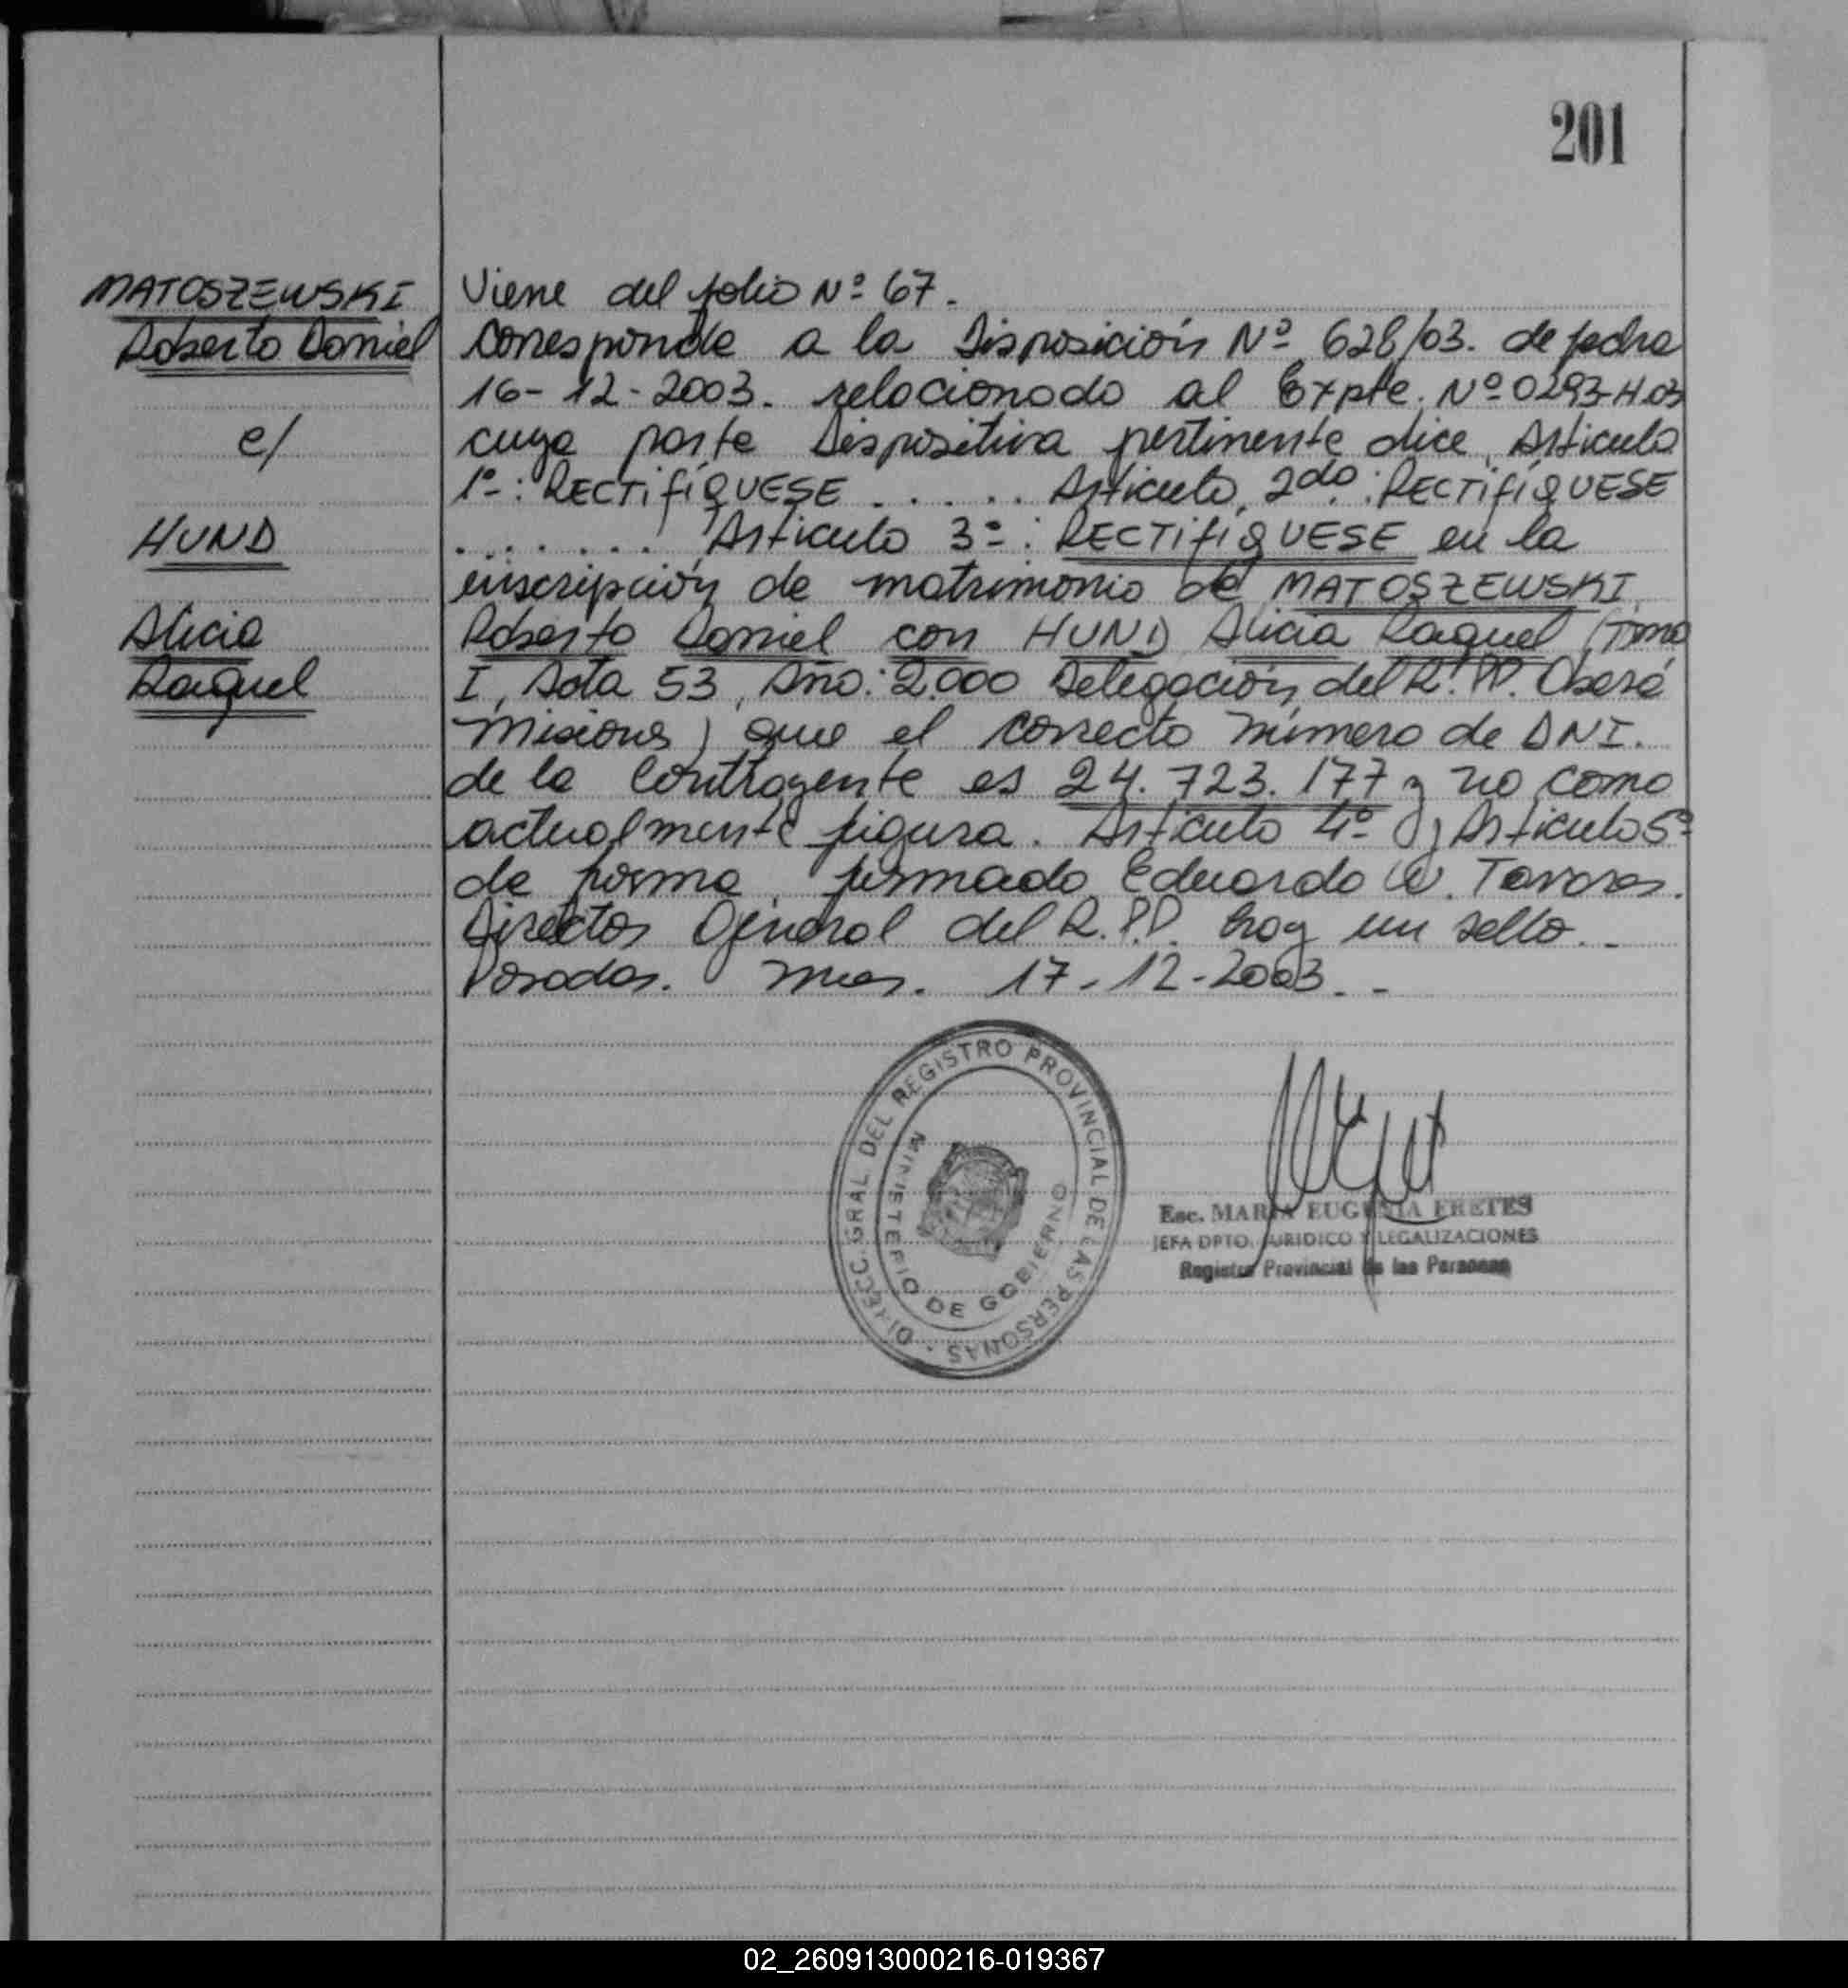 201
MATOSZEWSKI
Roberto Daniel
c/
HUND
Alicia
Raquel
Viene del folio Nº 67.
Corresponde a la Disposición Nº 628/03. de fecha
16-12-2003. relacionado al Expte. Nº 0293-H-03
cuya parte Dispositiva pertinente dice, Artículo
1º-: RECTIFÍQUESE . . . . . Artículo, 2do: RECTIFÍQUESE
. . . . . . . Artículo 3º: RECTIFÍQUESE en la
inscripción de matrimonio de MATOSZEWSKI
Roberto Daniel con HUND Alicia Raquel (Tomo
I, Acta 53, Año: 2.000 Delegación, del R.PP. Oberá
Misiones) que el correcto número de DNI.
de la Contrayente es 24.723.177 y no como
actualmente figura. Artículo 4º y Artículo 5º
de forma, firmado Eduardo W. Tavares.
Director General del R.P.P. hay un sello..-
Posadas. Mnes. 17-12-2003.-
DIRECC. GRAL DEL REGISTRO PROVINCIAL DE LAS PERSONAS
MINISTERIO DE GOBIERNO
Esc. MARIA EUGENIA FRETES
JEFA DPTO. JURIDICO Y LEGALIZACIONES
Registro Provincial de las Personas
02_260913000216-019367